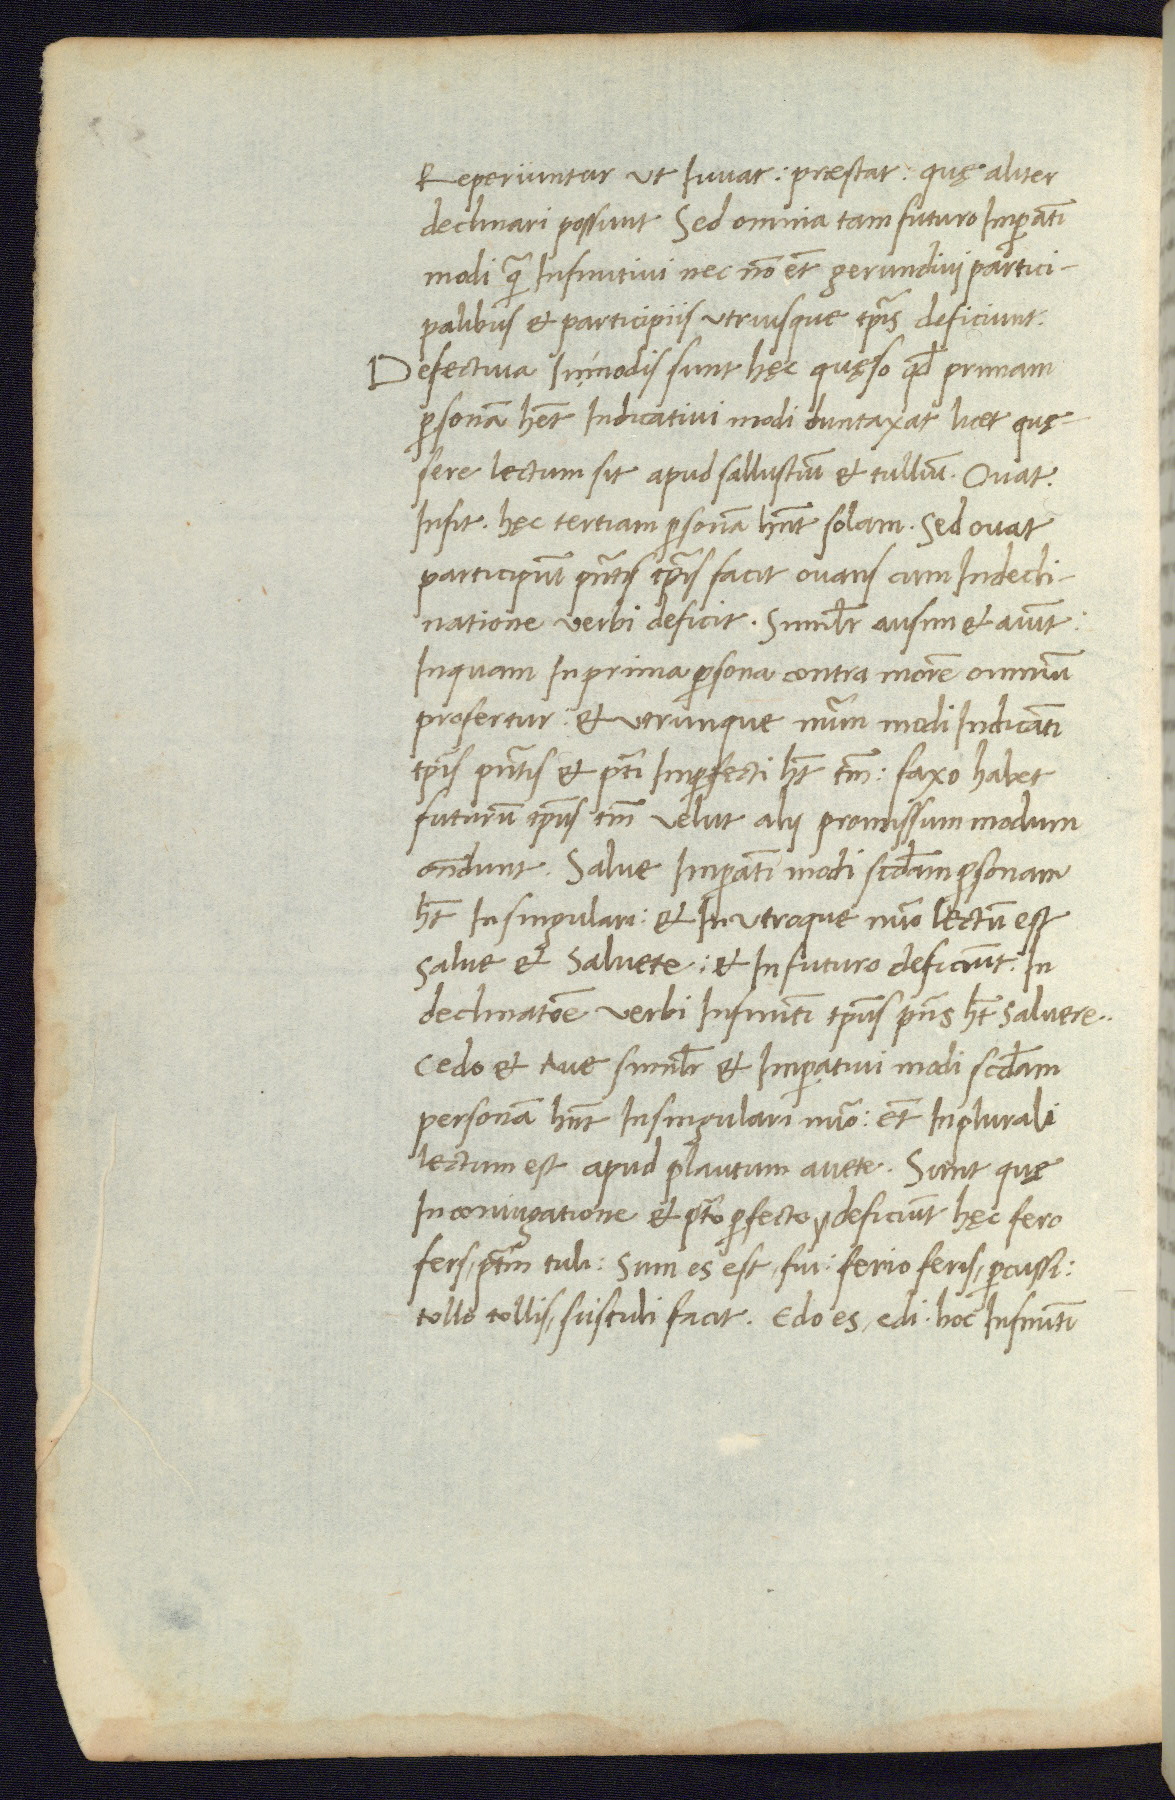 Reperiuntur ut Iuuat: præstat: quę aliter
declinari possunt Sed omnia tam futuro Imꝑati
modi q̃ Infinitiui nec nō et̄ gerundiui partici-
palibus et participiis utriusque tp̄is deficiunt.
Defectiua In modis sunt hęc quęso qđ primam
ꝑsonā hēt Indicatiui modi duntaxat licet quę-
sere lectum sit apud sallustiū et tulliū. Ouat.
Infit. hęc tertiam ꝑsonā hn̄t solam. Sed ouat
participiū pn̄tis tp̄is facit ouans cum In decli-
natione uerbi deficit. Similr̄ ausim et aiūt:
Inquam In prima ꝑsona contra morē omniū
profertur: et utrunque num̄ modi Indicati
tp̄is pn̄tis et pt̄i Imꝑfecti ht̄ tm̄: faxo habet
futurū tp̄us tm̄ uelut alii promissum modum
on̄dunt. Salue Imꝑati modi scđam ꝑsonam
ht̄ In singulari: et In utroque nūo lectū est
salue et saluete: et In futuro deficiūt. In
declinatōe uerbi Infiniti tp̄us pn̄s ht̄ saluere..
Cedo et Aue similr̄ et Imꝑatiui modi scđam
personā hn̄t In singulari nūo: et̄ In plurali
lectum est apud plautum auete. Sunt quę
In coniugatione et pt̄o ꝑfecto deficiūt hęc fero
fers, pt̄m tuli: Sum es est, fui: ferio feris, ꝑcussi:
tollo tollis, sustuli facit. Edo es, edi: hoc Infiniti